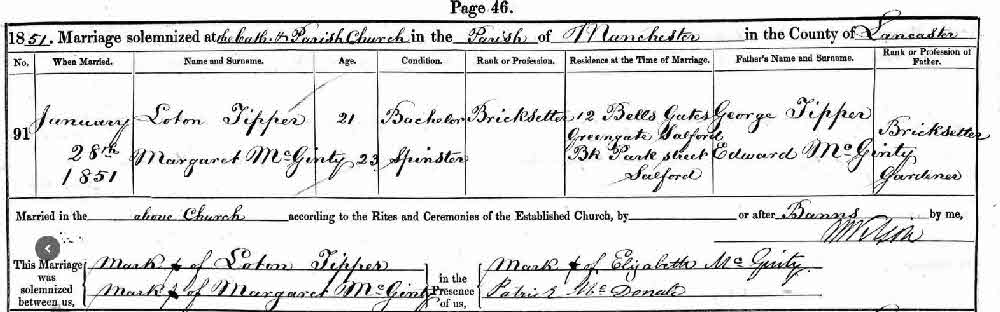 Page 46.
1851. Marriage solemnized at the Cath. & Parish Church in the Parish of Manchester in the County of Lancaster
No. When Married. Name and Surname. Age. Condition. Rank or Profession. Residence at the Time of Marriage. Father's Name and Surname. Rank or Profession of Father.
91 January 28th 1851
Loton Tipper 21 Bachelor Bricksetter 12 Bells Gates Greengate Salford George Tipper Bricksetter
Margaret McGinty 23 Spinster Bk Park street Salford Edward McGinty Gardener
Married in the above Church according to the Rites and Ceremonies of the Established Church, by or after Banns by me,
This Marriage was solemnized between us,
Mark of Loton Tipper
Mark of Margaret McGinty
in the Presence of us,
Mark of Elizabeth McGinty
Patrick McDonald